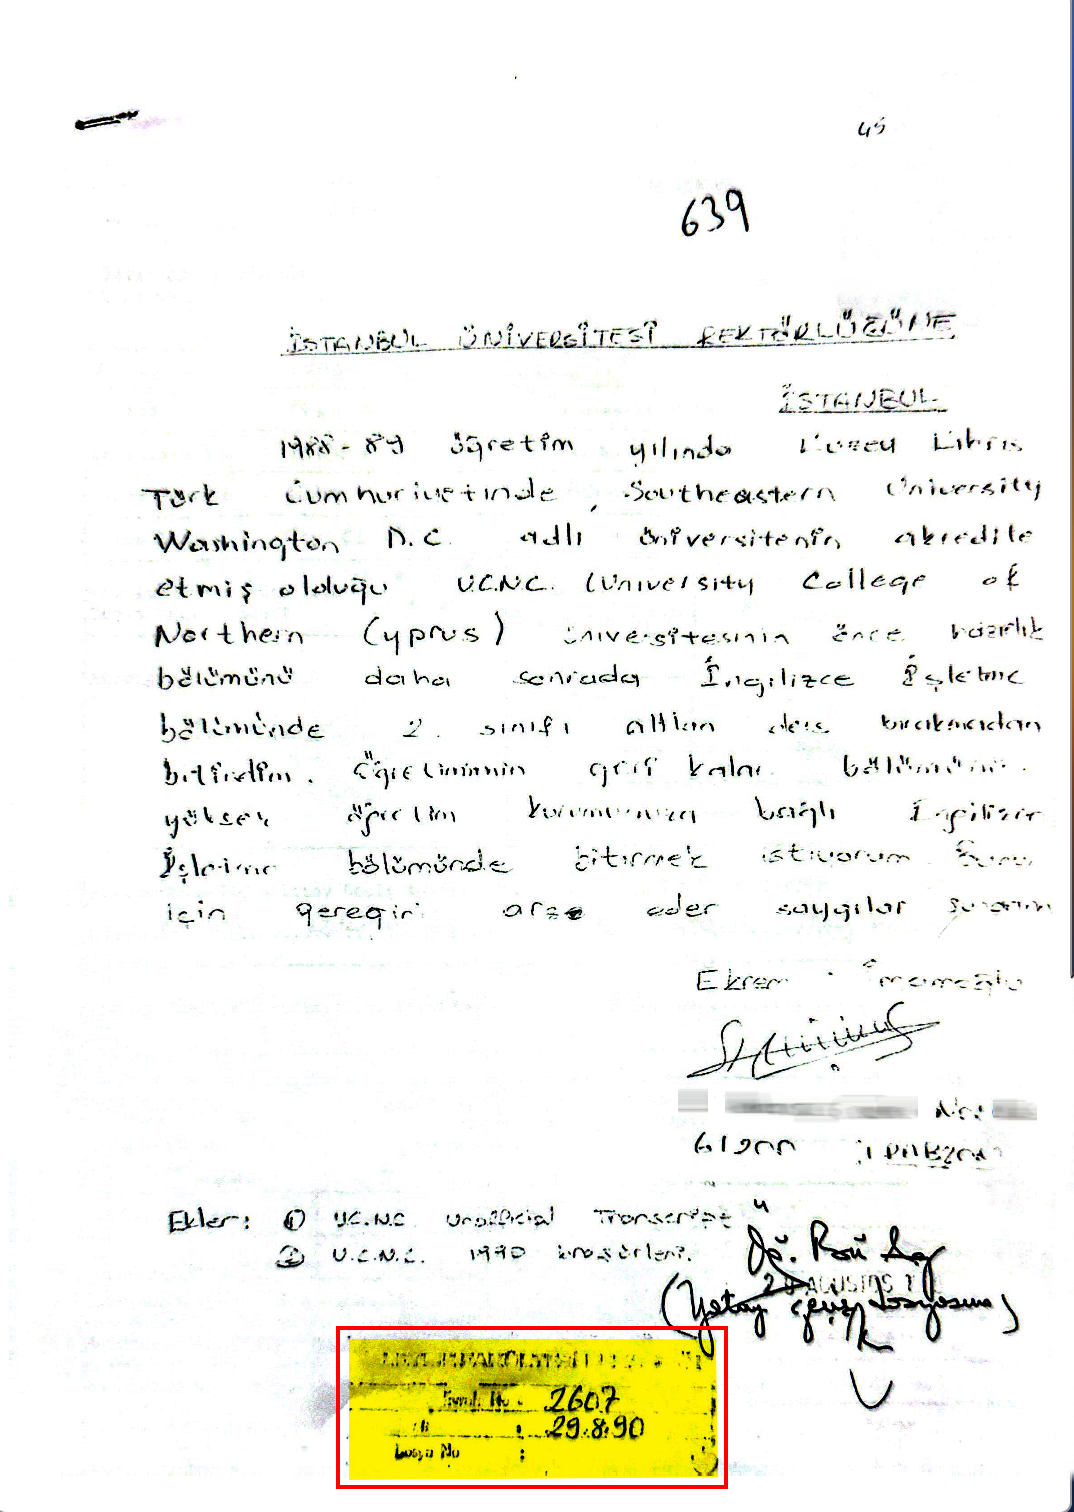 45
639
İSTANBUL ÜNİVERSİTESİ REKTÖRLÜĞÜNE
İSTANBUL
1988-89 öğretim yılında Kuzey Kıbrıs
Türk Cumhuriyetinde, Southeastern University
Washington D.C. adlı üniversitenin akredite
etmiş ololuğu U.C.N.C. (University College of
Northern Cyprus) üniversitesinin önce hazırlık
bölümünü daha sonrada İngilizce İşletme
bölümünde 2. sınıfı alttan ders bırakmadan
bitirdim. Öğretimimin geri kalan bölümünü
yüksek öğretim kurumunuza bağlı İngilizce
İşletme bölümünde bitirmek istiyorum. Bunun
için gereğini arz eder saygılar sunarım
Ekrem İmamoğlu
No:
61200 TRABZON
Ekler: 1 U.C.N.C. Unofficial Transcript
2 U.C.N.C. 1990 broşürleri.
AĞUSTOS
(Yatay geçiş dosyasına)
Evrak No : 2607
: 29.8.90
Dosya No :